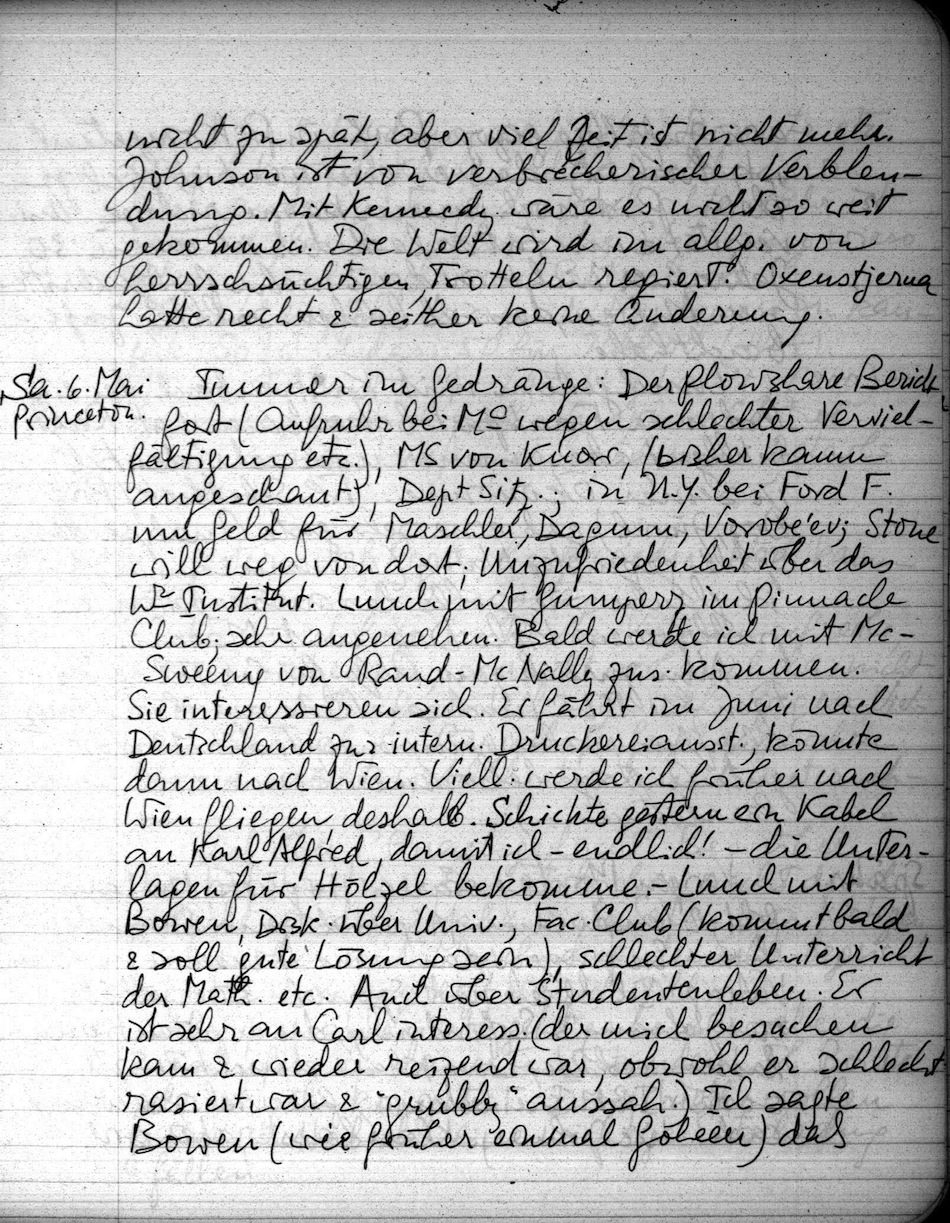 nicht zu spät, aber viel Zeit ist nicht mehr.
Johnson ist von verbrecherischer Verblen-
dung. Mit Kennedy wäre es nicht so weit
gekommen. Die Welt wird im allg. von
herrschsüchtigen Trotteln regiert. Oxenstjerna
hatte recht & seither keine Änderung.
Sa. 6. Mai Immer im Gedränge: Der Plowshare Bericht
Princeton. fort (Aufruhr bei Ma wegen schlechter Verviel-
fältigung etc.), MS von Knorr, (bisher kaum
angeschaut), Dept Sitz.; in N.Y. bei Ford F.
um Geld für Maschler, Dagum, Vorobe'ev; Stone
will weg von dort; Unzufriedenheit über das
Wr Institut. Lunch mit Gumperz im Pinnacle
Club; sehr angenehm. Bald werde ich mit Mc-
Sweeny von Rand-McNally zus. kommen.
Sie interessieren sich. Er fährt im Juni nach
Deutschland zur intern. Druckereiausst., könnte
dann nach Wien. Viell. werde ich früher nach
Wien fliegen, deshalb. Schickte gestern ein Kabel
an Karl Alfred, damit ich - endlich! - die Unter-
lagen für Hölzel bekomme. - Lunch mit
Bowen, Disk. über Univ., Fac. Club (kommt bald
& soll gute Lösung sein), schlechter Unterricht
der Math. etc. Auch über Studentenleben. Er
ist sehr an Carl interess. (der mich besuchen
kam & wieder reizend war, obwohl er schlecht
rasiert war & "grubby" aussah.) Ich sagte
Bowen (wie früher einmal Goheen) daß